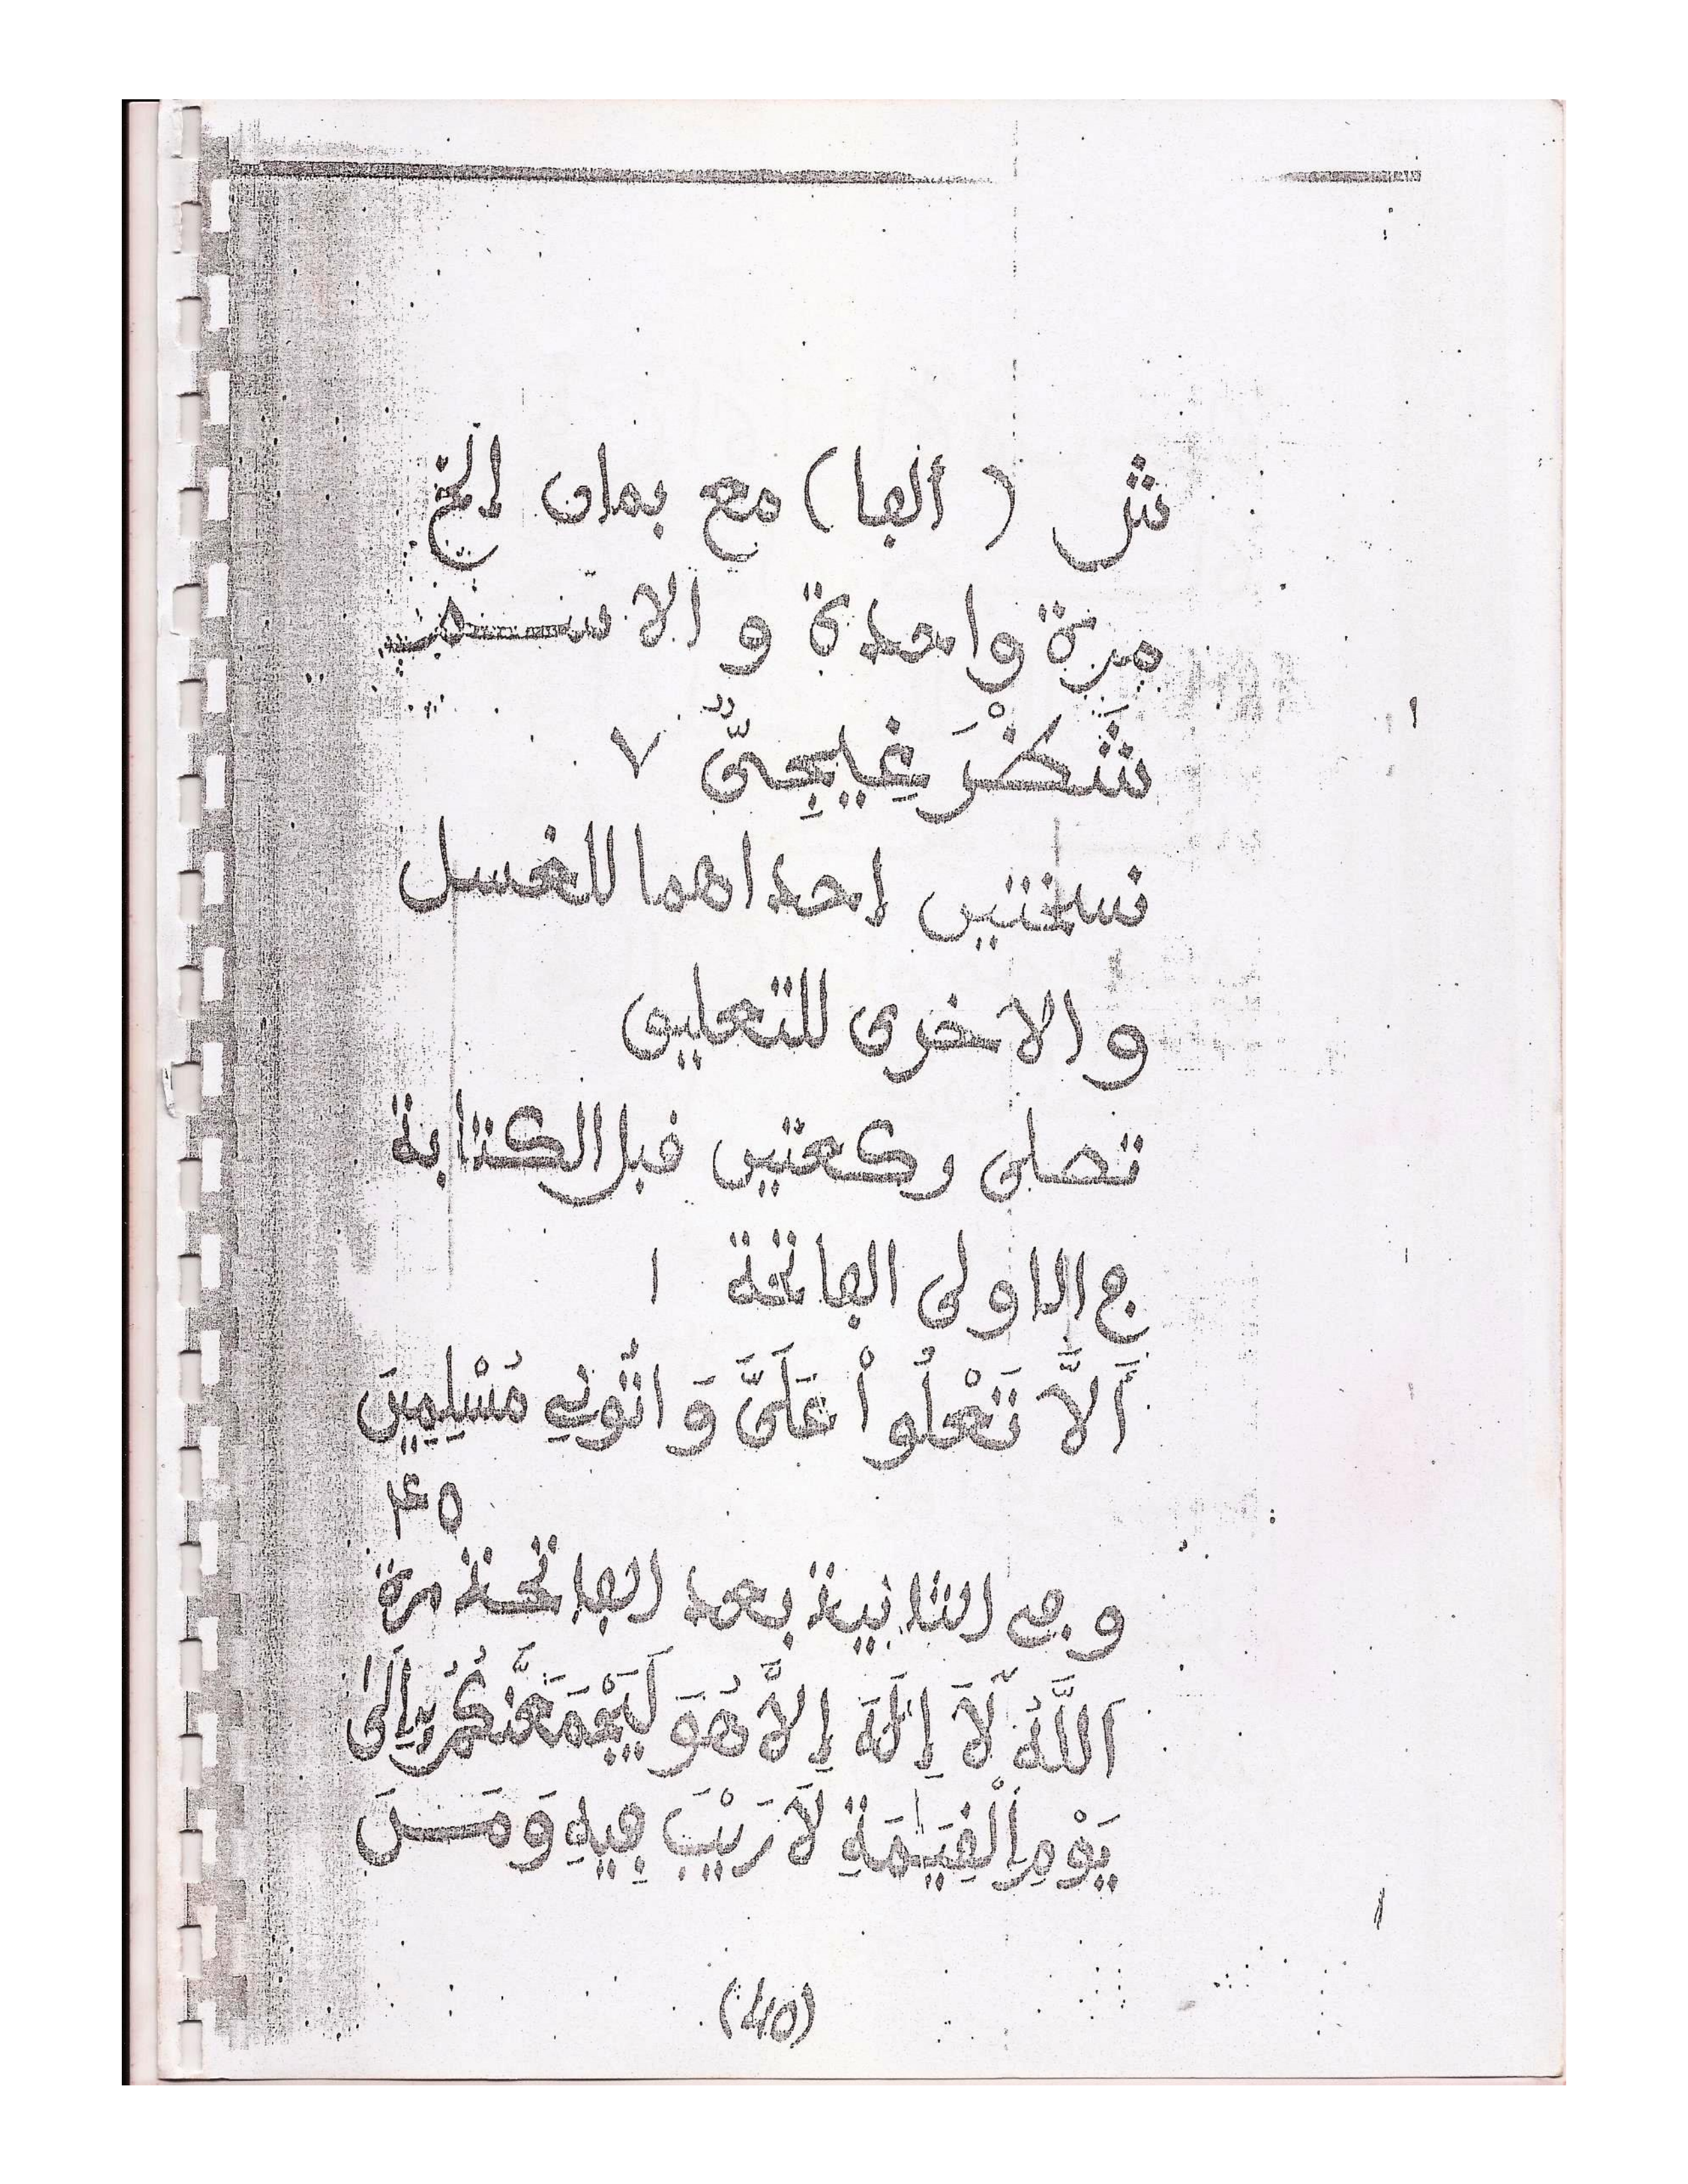 شر ( الفا ) مع بمان إلخ
مرة واحدة و الاســم
شَكْرَ غِيجِىٌّ ٧
نسختين إحداهما للغسل
و الاخرى للتعليق
تصلى ركعتين قبل الكتابة
ج الاولى الفاتحة ١
أَلاَّ تَعْلُواْ عَلَىَّ وَ اتُونِي مُسْلِمِينَ
٤٥
و في الثانية بعد الفاتحة مرة
اَللَّهُ لَآ إِلَهَ إِلاَّ هُوَ لَيَجْمَعَنَّكُمْ إِلَىٰ
يَوْمِ اِلْقِيَٰمَةِ لاَ رَيْبَ فِيهِ وَمَــنَ
(٤١٥)